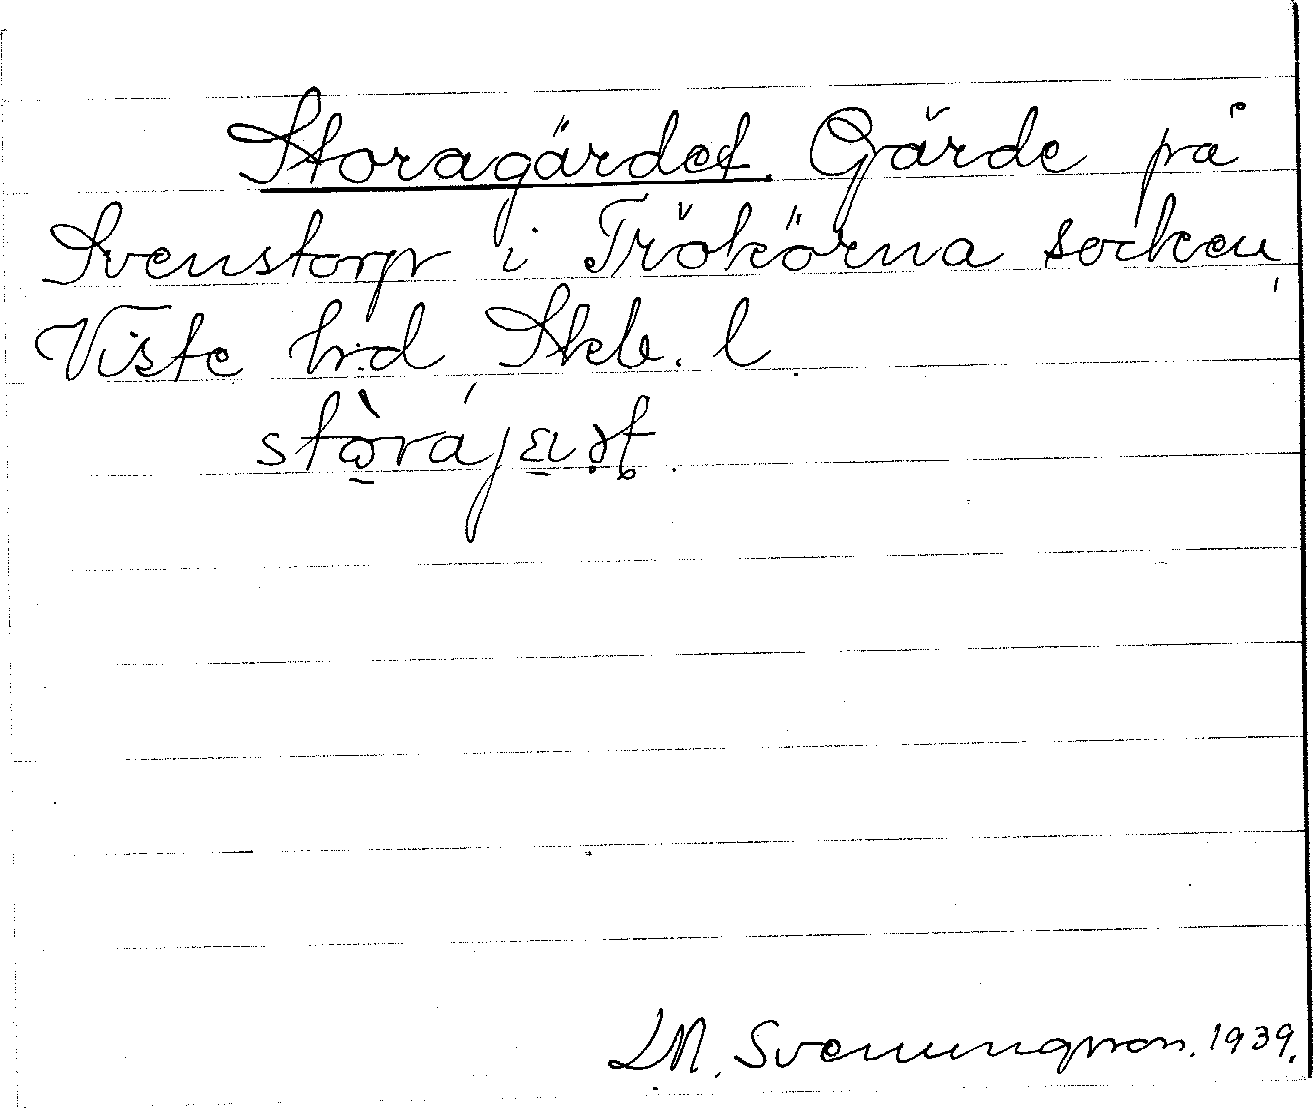 Storagärdet. Gärde på
Svenstorp i Trökörna socken,
Viste h:d, Skb. l.
LM. Svenungsson. 1939.